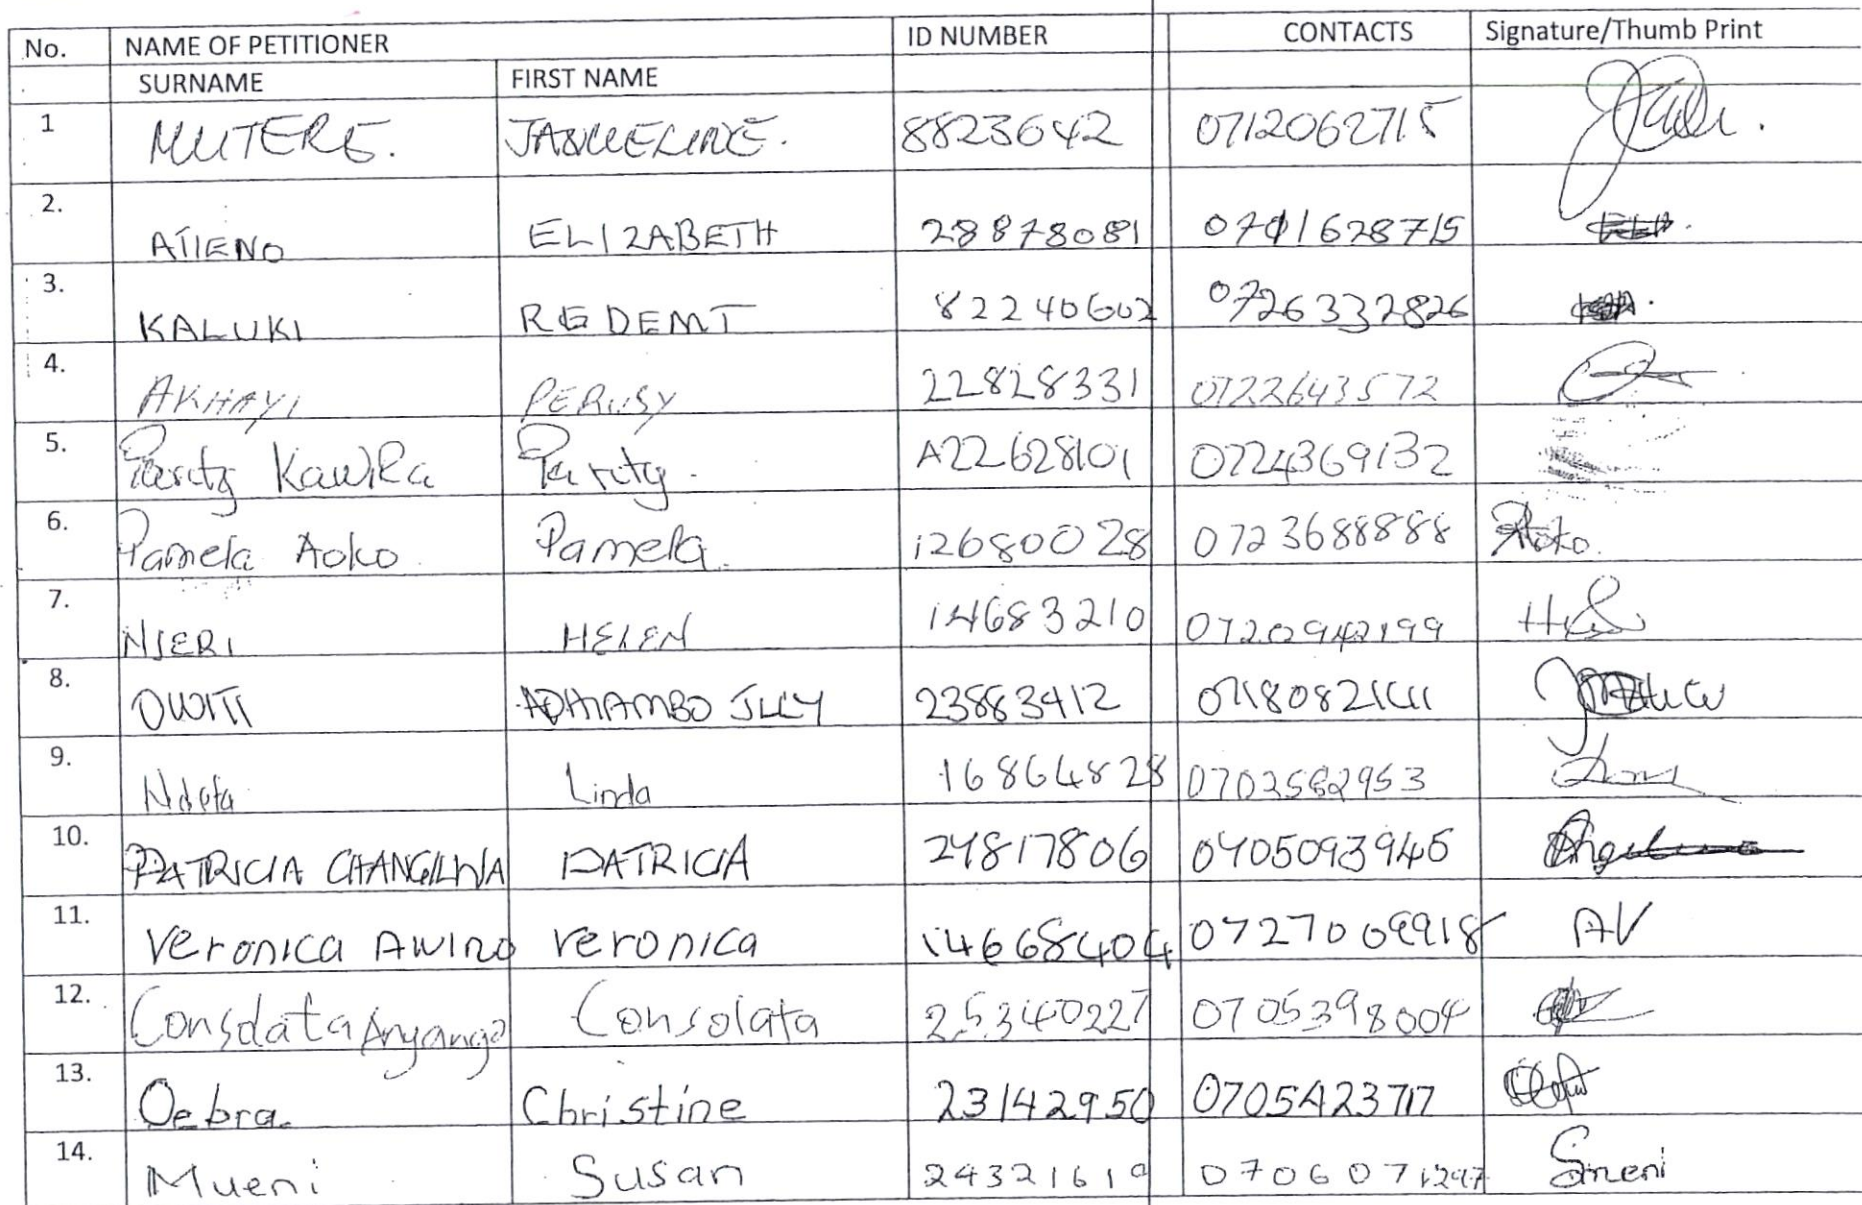 No. NAME OF PETITIONER ID NUMBER CONTACTS Signature/Thumb Print
SURNAME FIRST NAME
1 MUTERE. JAQUELINE. 8823642 0712062715
2. ATIENO ELIZABETH 28878081 0701628715
3. KALUKI REDEMT 82240602 0726332826
4. AKHAYI PERUSY 22828331 0722643572
5. Purity KawiRa Purity. A22628101 0724369132
6. Pamela Aoko Pamela. 12680028 0723688888 Aoko.
7. NJERI HELEN 14683210 0720942199
8. OWITI ADHIAMBO JULY 23883412 0718082141
9. Ndeta Linda 16864828 0702582953
10. PATRICIA CHANGILWA PATRICIA 24817806 0705093945
11. Veronica AWINO Veronica 14668404 0727009918 AV
12. Consolata Anyango Consolata 25340227 0705398004
13. Oebra Christine 23142950 0705423717
14. Mueni Susan 24321619 0706071297 Smeni